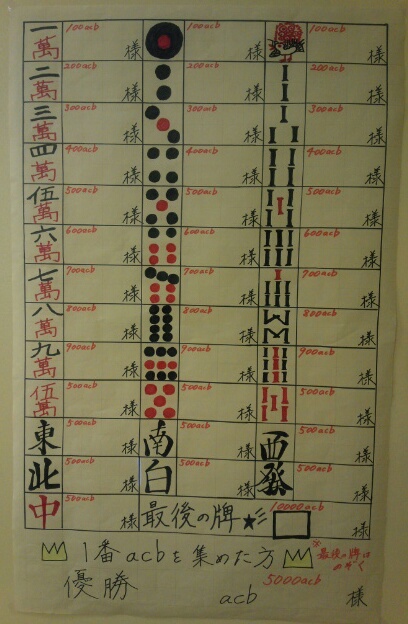 一萬 100acb 様 100acb 様 100acb 様
二萬 200acb 様 200acb 様 200acb 様
三萬 300acb 様 300acb 様 300acb 様
四萬 400acb 様 400acb 様 400acb 様
伍萬 500acb 様 500acb 様 500acb 様
六萬 600acb 様 600acb 様 600acb 様
七萬 700acb 様 700acb 様 700acb 様
八萬 800acb 様 800acb 様 800acb 様
九萬 900acb 様 900acb 様 900acb 様
伍萬 500acb 様 500acb 様 500acb 様
東 500acb 様 南 500acb 様 西 500acb 様
北 500acb 様 白 500acb 様 發 500acb 様
中 500acb 様 最後の牌★彡 10000acb 様
1番acbを集めた方 ※最後の牌は
のぞく
優勝 acb 5000acb 様